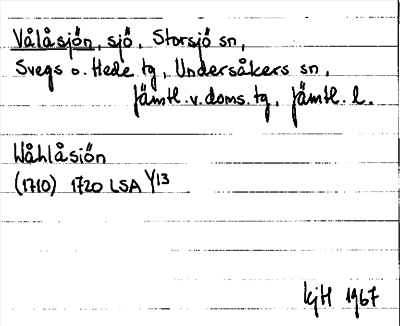 Vålåsjön, sjö, Storsjö sn,
Svegs o. Hede tg, Undersåkers sn,
Jämtl. v. doms. tg, Jämtl. l.
Wåhlåsiön
(1710) 1720 LSA Y13
kjH 1967